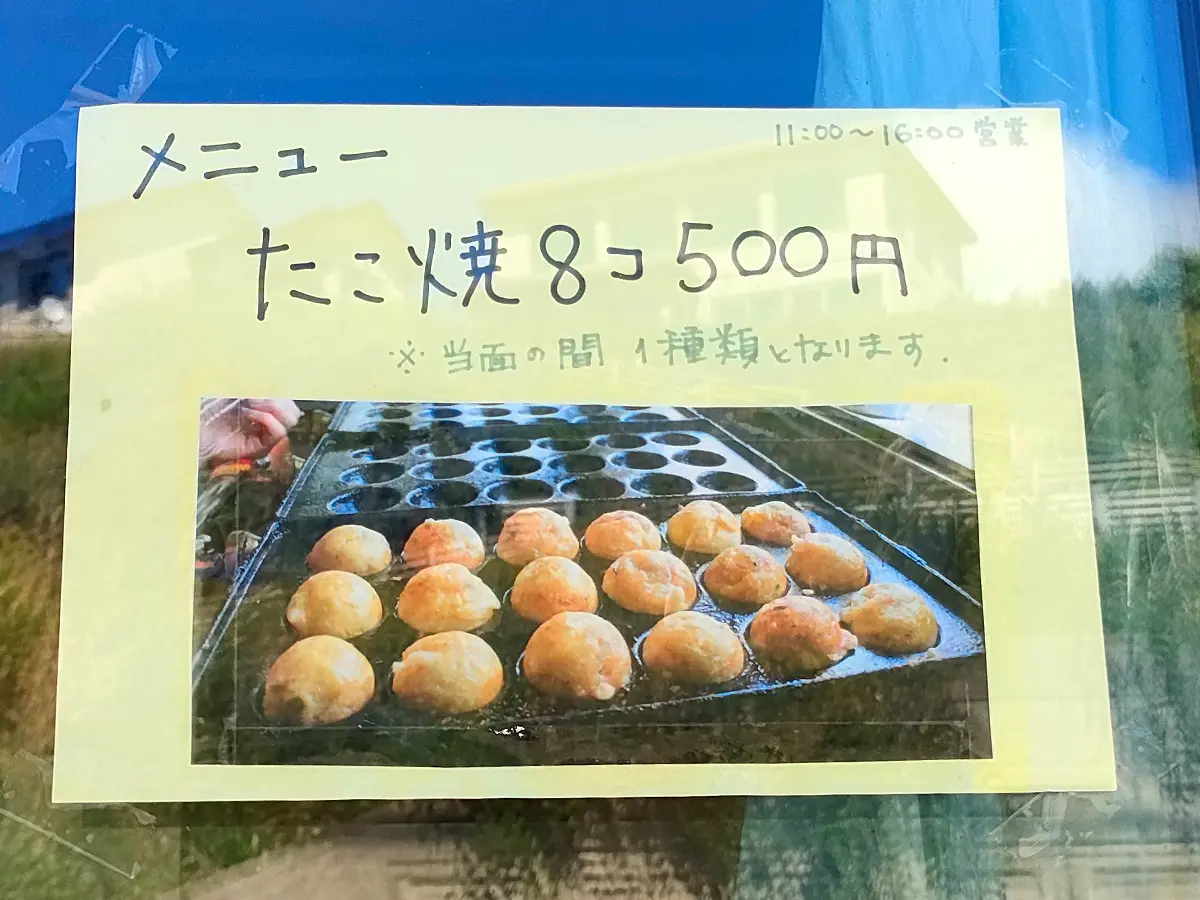 11:00～16:00 営業
メニュー
たこ焼 8コ 500円
※ 当面の間 1種類となります.